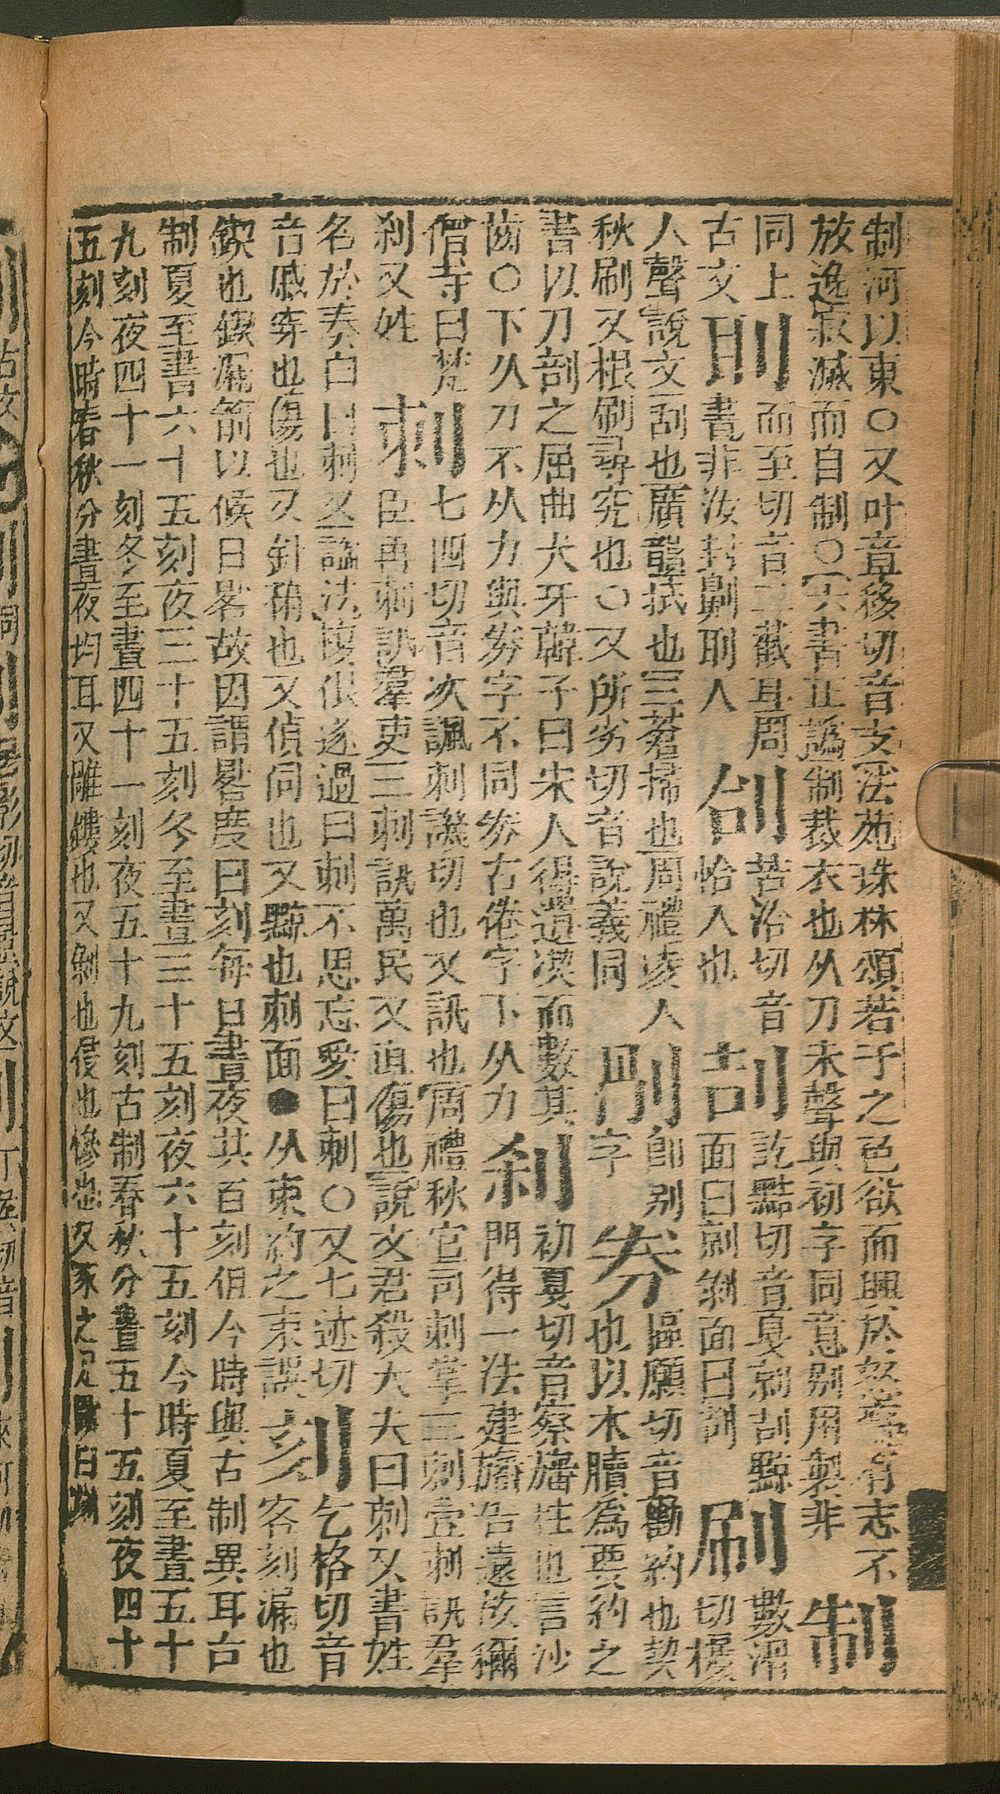 制河以東○又叶音移切音支法苑珠林頌若于之色欲而興於怒害有志不
放逸寂滅而自制○六書正譌制裁衣也从刀未聲與初字同意别用製非 制
同上 刵 而至切音二截耳周 㓣 苦洽切音 刮 訖黠切音戛剠刮黥 刷 數滑
古文 書非汝封劓刵人 恰入也 面曰剠剝面曰 切
人聲說文刮也廣韻拭也三蒼掃也周禮凌人 刷 卽别 券 區願切音勸約也契
秋刷又根刷尋究也○又所劣切音說義同 字 也以木牘爲要約之
書以刀剖之屈曲犬牙韓子曰宋人得遺契而數其 刹 初戛切音察旛柱也言沙
齒○下从刀不从力與劵字不同劵古倦字下从力 門得一法建旛告遠故稱
僧寺曰梵 刺 七四切音次諷刺譏切也又訊也周禮秋官司刺掌三刺壹刺訊羣
刹又姓 臣再刺訊羣吏三刺訊萬民又直傷也說文君殺大夫曰刺又書姓
名於奏白曰刺又謚法愎佷遂過曰刺不思忘愛曰刺○又七迹切 刻 乞格切音
音戚穿也傷也又針黹也又偵伺也又黥也刺面●从朿約之朿誤 客刻漏也
鍥也鏤漏箭以候日晷故因謂晷度曰刻每日晝夜共百刻但今時與古制異耳古
制夏至晝六十五刻夜三十五刻冬至晝三十五刻夜六十五刻今時夏至晝五十
九刻夜四十一刻冬至晝四十一刻夜五十九刻古制春秋分晝五十五刻夜四十
五刻今時春秋分晝夜均耳又雕鏤也又剝也侵也慘也又豕之